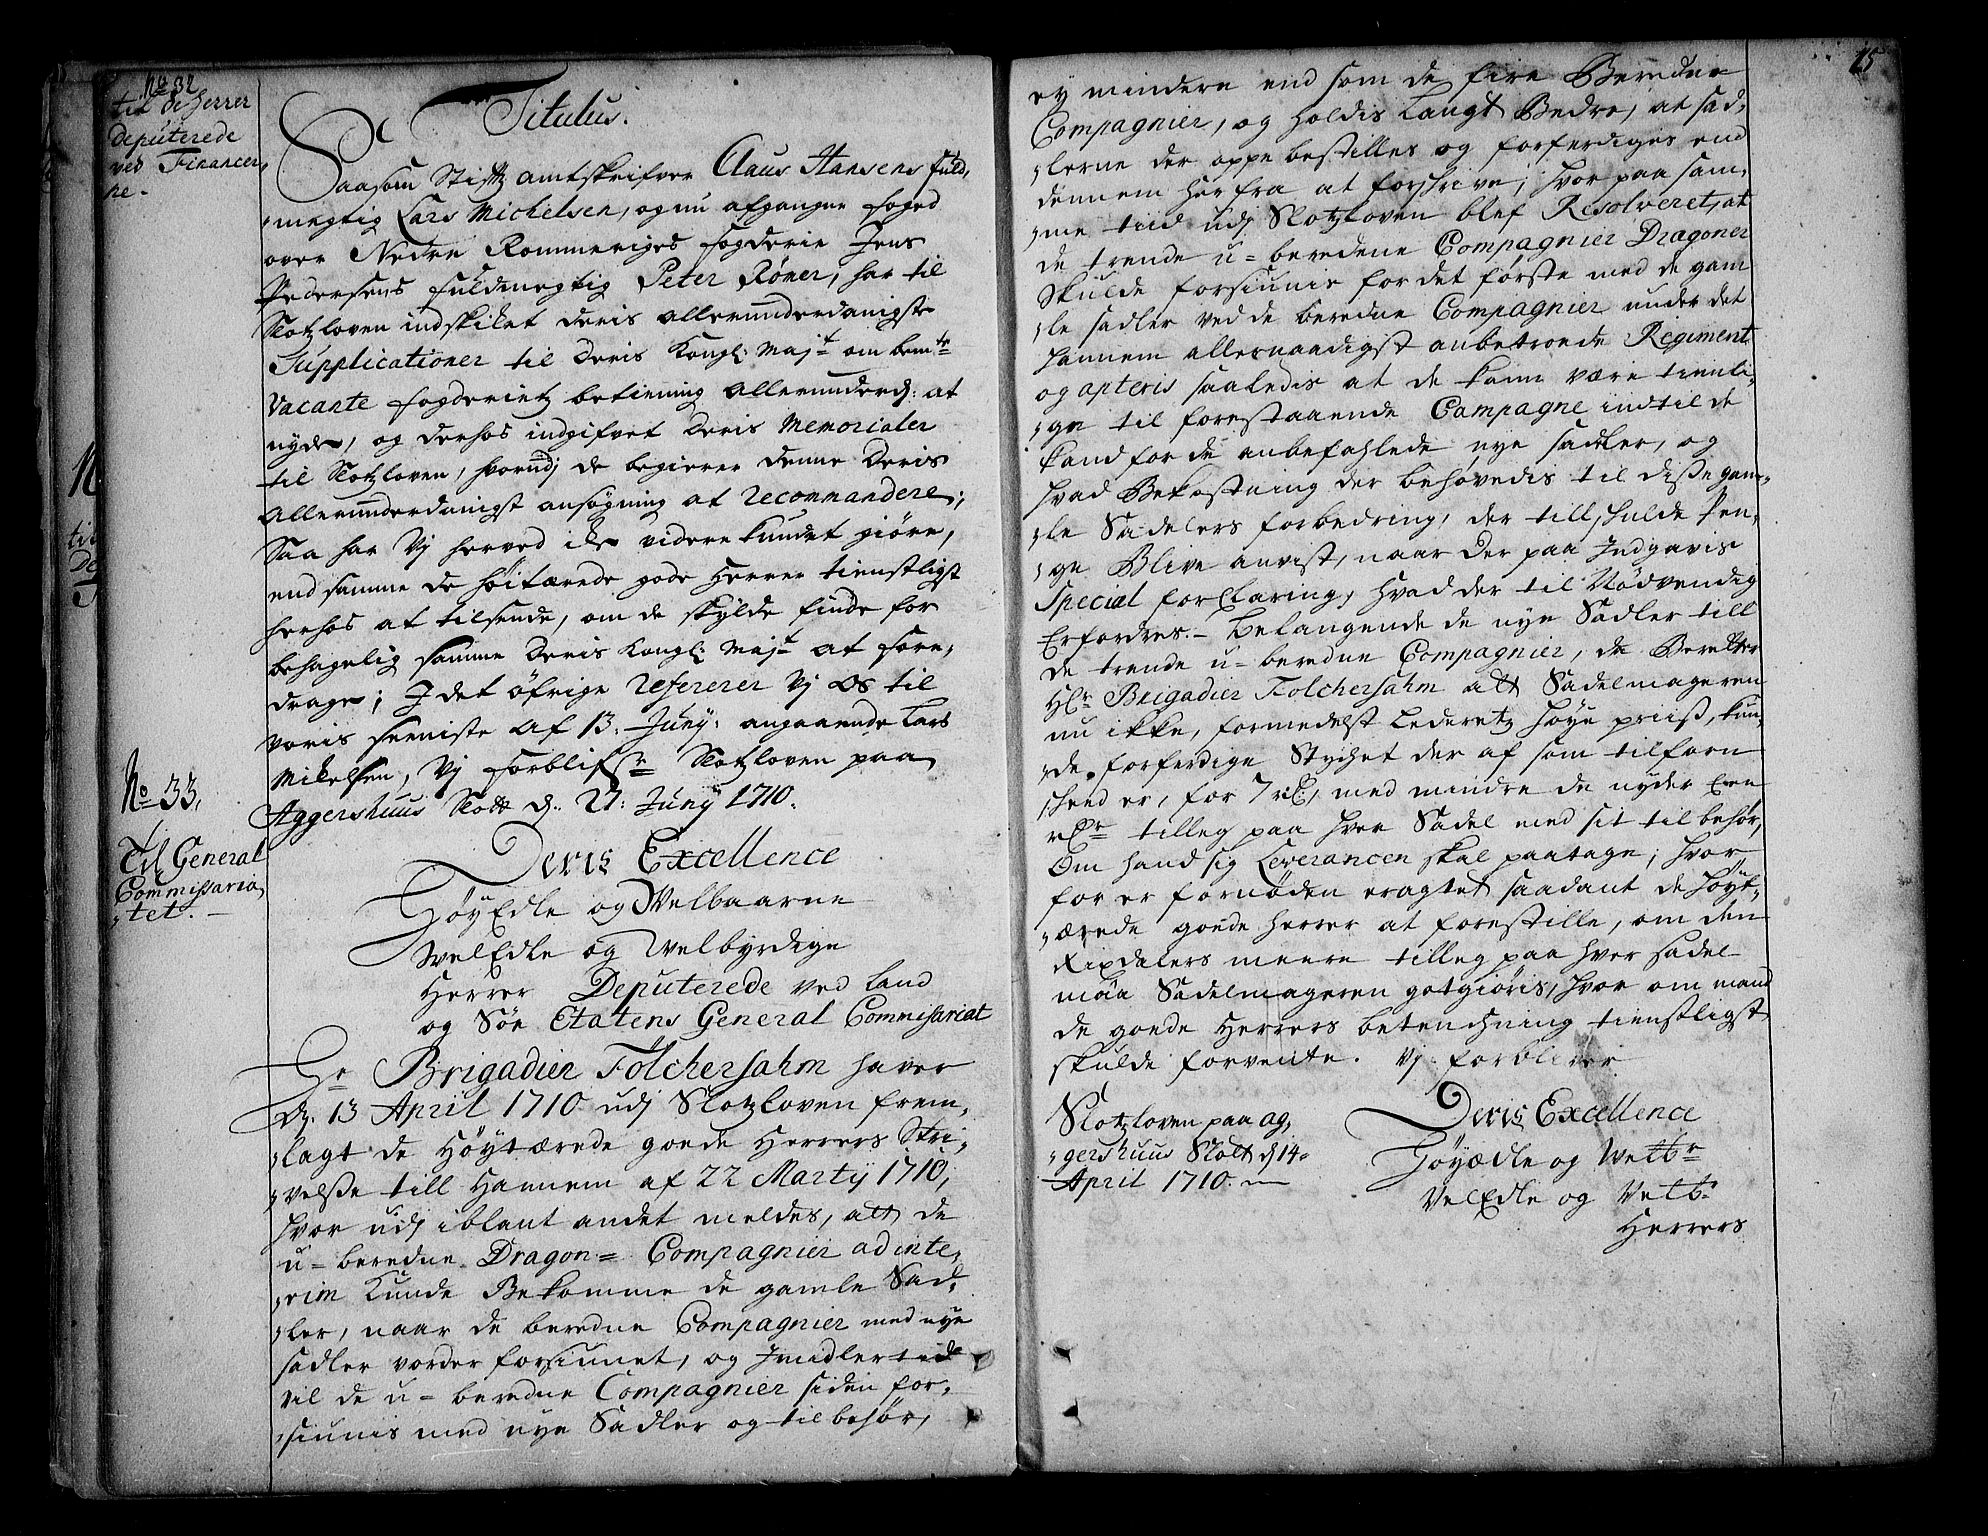 No 32
til de herrer
Deputerede
ved Financer,
ne.
Titulus.
Saasom Stiftz amtskrifver Claus Hansens fuld,
,megtig Lars Michelsen, og nu afgangne foged
over Nedre Rommeriges fogderie Jens
Pedersens fuldmegtig Peter Röner, har til
Slotzloven indskiket deris allerunderdanigste
Supplicationer til Deris Kongl: Majt om bemte
Vacante fogderietz betiening allerunderd: at
nyde, og derhos indgifvet deris Memorialer
til Slotzloven, hvorudj de begierer denne deris
allerunderdanigst ansøgning at recommandere;
Saa har Vj herved ike videre kundet giöre,
end samme de höitærede gode Herrer tienstligst
herhos at tilsende, om de skylde finde for
behagelig samme Deris Kongl: Majt at fore,
drage; I det öfrige refererer Vj os til
voris seeniste af 13. Junij: angaaende Lars
Mikelsen, Vj forblifr Slotzloven paa
Aggershuus Slott d: 21: Junij 1710.
No 33.
Til General
Commissaria,
,tet.
Deris Excellence
HöyEdle og Welbaarne
WelEdle og Welbyrdige
Herrer Deputerede ved Land
og Söe Etatens General Commissariat
Hr Brigadier Folchersahm haver
D. 13 April 1710 udj Slotzloven frem,
,lagt de Höytærede goede Herrers Skri,
,velsse till Hannem af 22 Martij 1710,
hvor udj iblant andet meldes, att de
u-beredne Dragon= Compagnier ad inte,
,rim kunde Bekomme de gamle Sad,
,ler, naar de beredne Compagnier med nye
sadler vorder forsiunet, og Imidlertid
vil de u-beredne Compagnier siden for,
,siunis med nye Sadler og tilbehör,
25
ey mindere end som de fire Beredne
Compagnier, og holdis Langt Bedre, at sad,
,lerne der oppe bestilles og forferdiges end
dennem herfra at forskrive; hvor paa sam,
,me tiid udj Slotzloven blef Resolveret, at
de trende u=beredene Compagnier Dragoner
Skulde forsiunis for det förste med de gam
,le sadler ved de beredne Compagnier under det
hannem allernaadigst anbetroede Regiment
og apteris saaledis at de kann være tienli,
,ge til forestaaende Campagne indtil de
kand faae de anbefahlede nye sadler, og
hvad Bekostning der behövedis til disse gam,
,le Sadelers forbedring, der till skulde Pen,
,ge Blive anvist, naar der paa Indgavis
Special forklaring, hvad der til Nödvendig
Erfordres.- Belangende de nye Sadler till
de trende u-beredne Compagnier, da Beretter
Hr Brigadier Folchersahm att Sadelmageren
nu ikke, formedelst Lederetz höye priis, kun,
,de forferdige Stychet der af som tilforn
skeed er, for 7 rd, med mindre de nyder Een
rdr tilleg paa hver Sadel med sit tilbehör,
Om hand sig Leverancen skal paatage; hvor
for er fornöden eragtet saadant de höyt,
,ærede goede herrer at forestille, om den
Rixdalers meere tilleg paa hver sadel
maa Sadelmageren gotgiöris, hvor om mand
de goede Herrers betenchning tienstligst
skulde forvente. Vj forbliver
Slotzloven paa ag,
,gershuus Slott d 14
April 1710.
Deris Excellence
Höyædle og Welbr
VelEdle og Velb.
Herrers